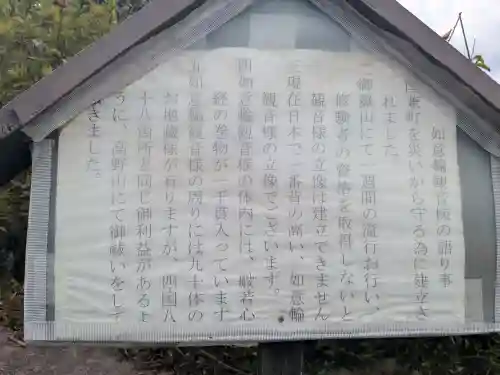 如意輪観音様の語り事
坂町を災いから守る為に建立さ
れました
御嶽山にて一週間の荒行お行い、
修験者の資格を取得しないと
観音様の立像は建立できません
現在日本で一番背の高い、如意輪
観音様の立像でございます。
四如意輪観音様の体内には、般若心
経の巻物が一千貫入っています
五如意輪観音様の周りには九十体の
お地蔵様が有りますが、四国八
十八箇所と同じ御利益があるよ
うに、高野山にて御祓いをして
きました。